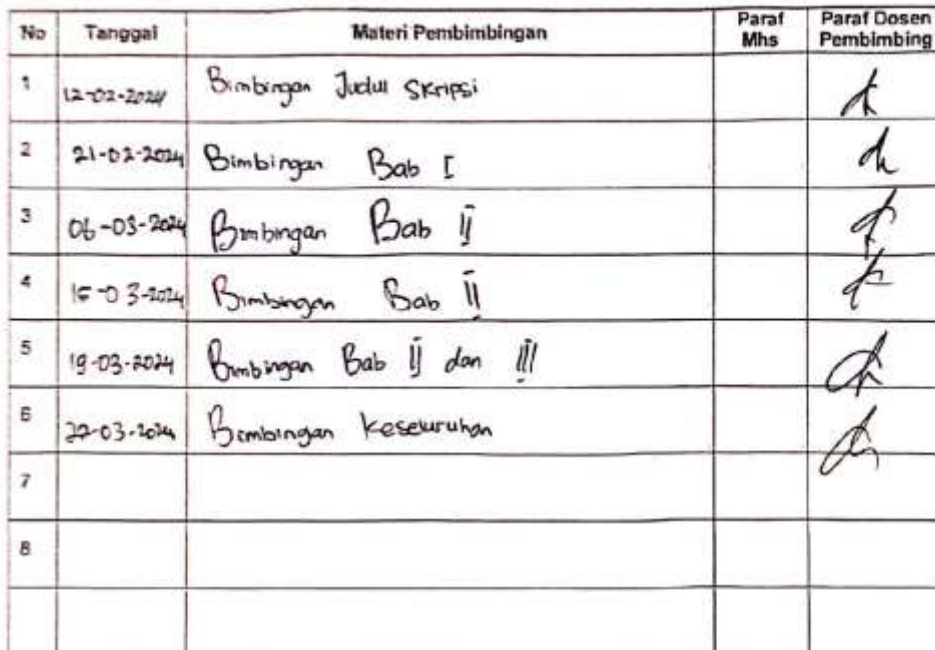 No Tanggal Materi Pembimbingan Paraf Mhs Paraf Dosen Pembimbing
1 12-02-2024 Bimbingan Judul Skripsi
2 21-02-2024 Bimbingan Bab I
3 06-03-2024 Bimbingan Bab II
4 15-03-2024 Bimbingan Bab II
5 19-03-2024 Bimbingan Bab II dan III
6 22-03-2024 Bimbingan Keseluruhan
7
8